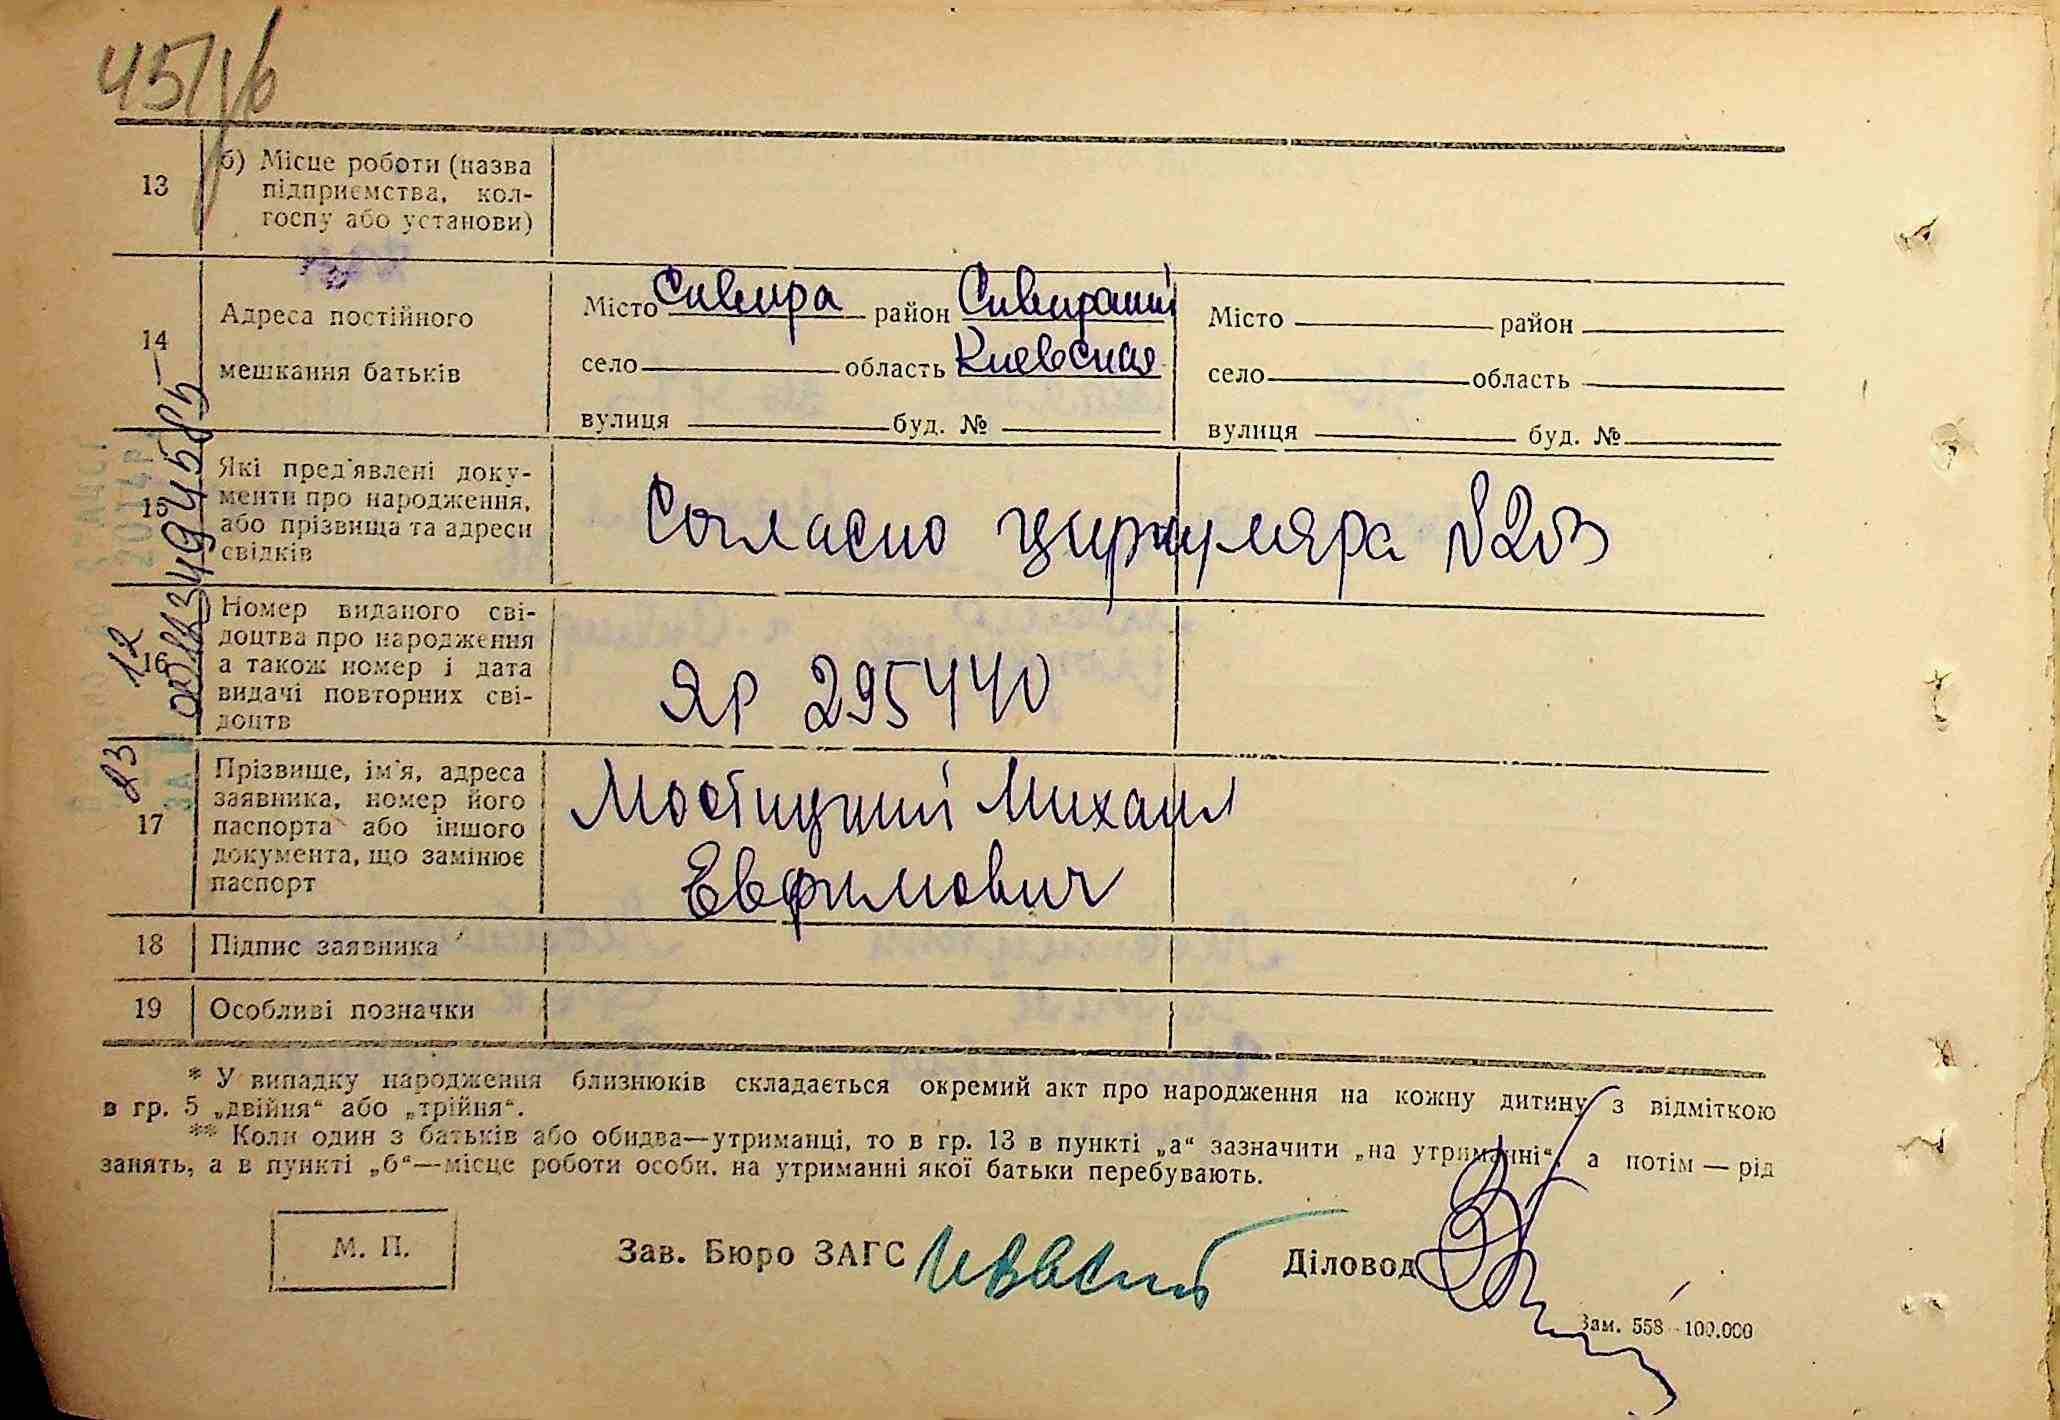 13
б) Місце роботи (назва
підприємства, кол-
госпу або установи)
14
Адреса постійного
мешкання батьків
Місто Сквира район Сквирский
село область Киевская
вулиця буд. №
Місто район
село область
вулиця буд. №
15
Які пред'явлені доку-
менти про народження,
або прізвища та адреси
свідків
Согласно циркуляра №203
16
Номер виданого сві-
доцтва про народження
а також номер і дата
видачі повторних сві-
доцтв
ЯР 295440
17
Прізвище, ім'я, адреса
заявника, номер його
паспорта або іншого
документа, що замінює
паспорт
Мостицкий Михаил
Евфимович
18
Підпис заявника
19
Особливі позначки
* У випадку народження близнюків складається окремий акт про народження на кожну дитину з відміткою
в гр. 5 „двійня“ або „трійня“.
** Коли один з батьків або обидва—утриманці, то в гр. 13 в пункті „а“ зазначити „на утриманні“, а потім — рід
занять, а в пункті „б“—місце роботи особи, на утриманні якої батьки перебувають.
М. П.
Зав. Бюро ЗАГС
Діловод
Зам. 558—100.000